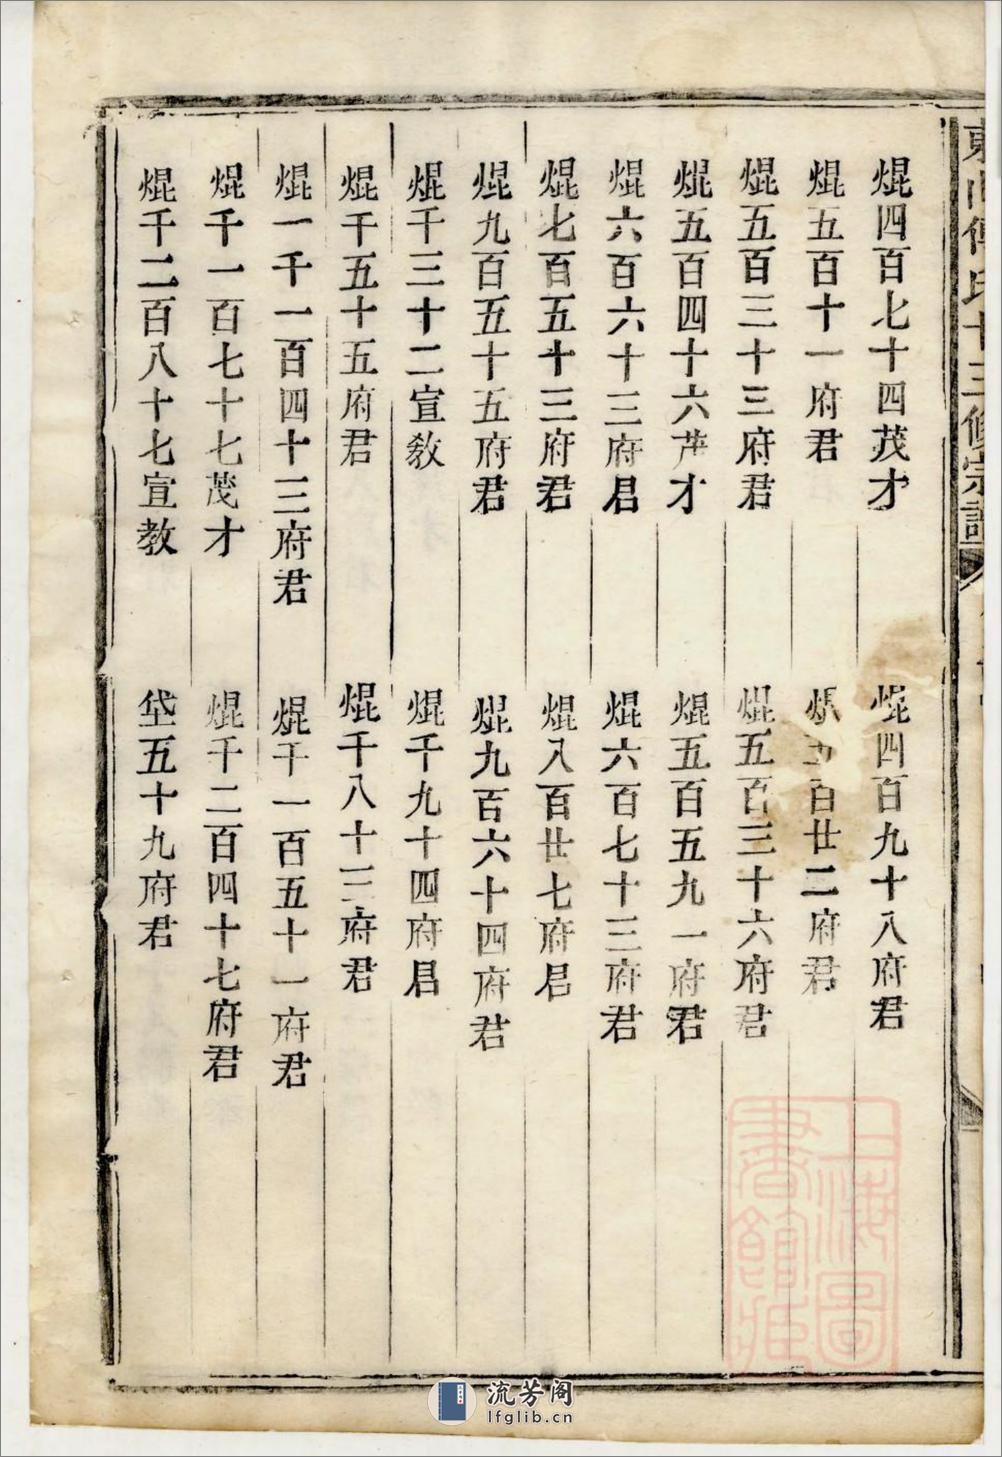 東山傅氏十三修宗譜
焜四百七十四茂才
焜四百九十八府君
焜五百十一府君
焜五百廿二府君
焜五百三十三府君
焜五百三十六府君
焜五百四十六茂才
焜五百五九一府君
焜六百六十三府君
焜六百七十三府君
焜七百五十三府君
焜八百廿七府君
焜九百五十五府君
焜九百六十四府君
焜千三十二宣教
焜千九十四府君
焜千五十五府君
焜千八十三府君
焜一千一百四十三府君
焜千一百五十一府君
焜千一百七十七茂才
焜千二百四十七府君
焜千二百八十七宣教
垡五十九府君
上海圖書館藏
流芳阁
lfglib.cn